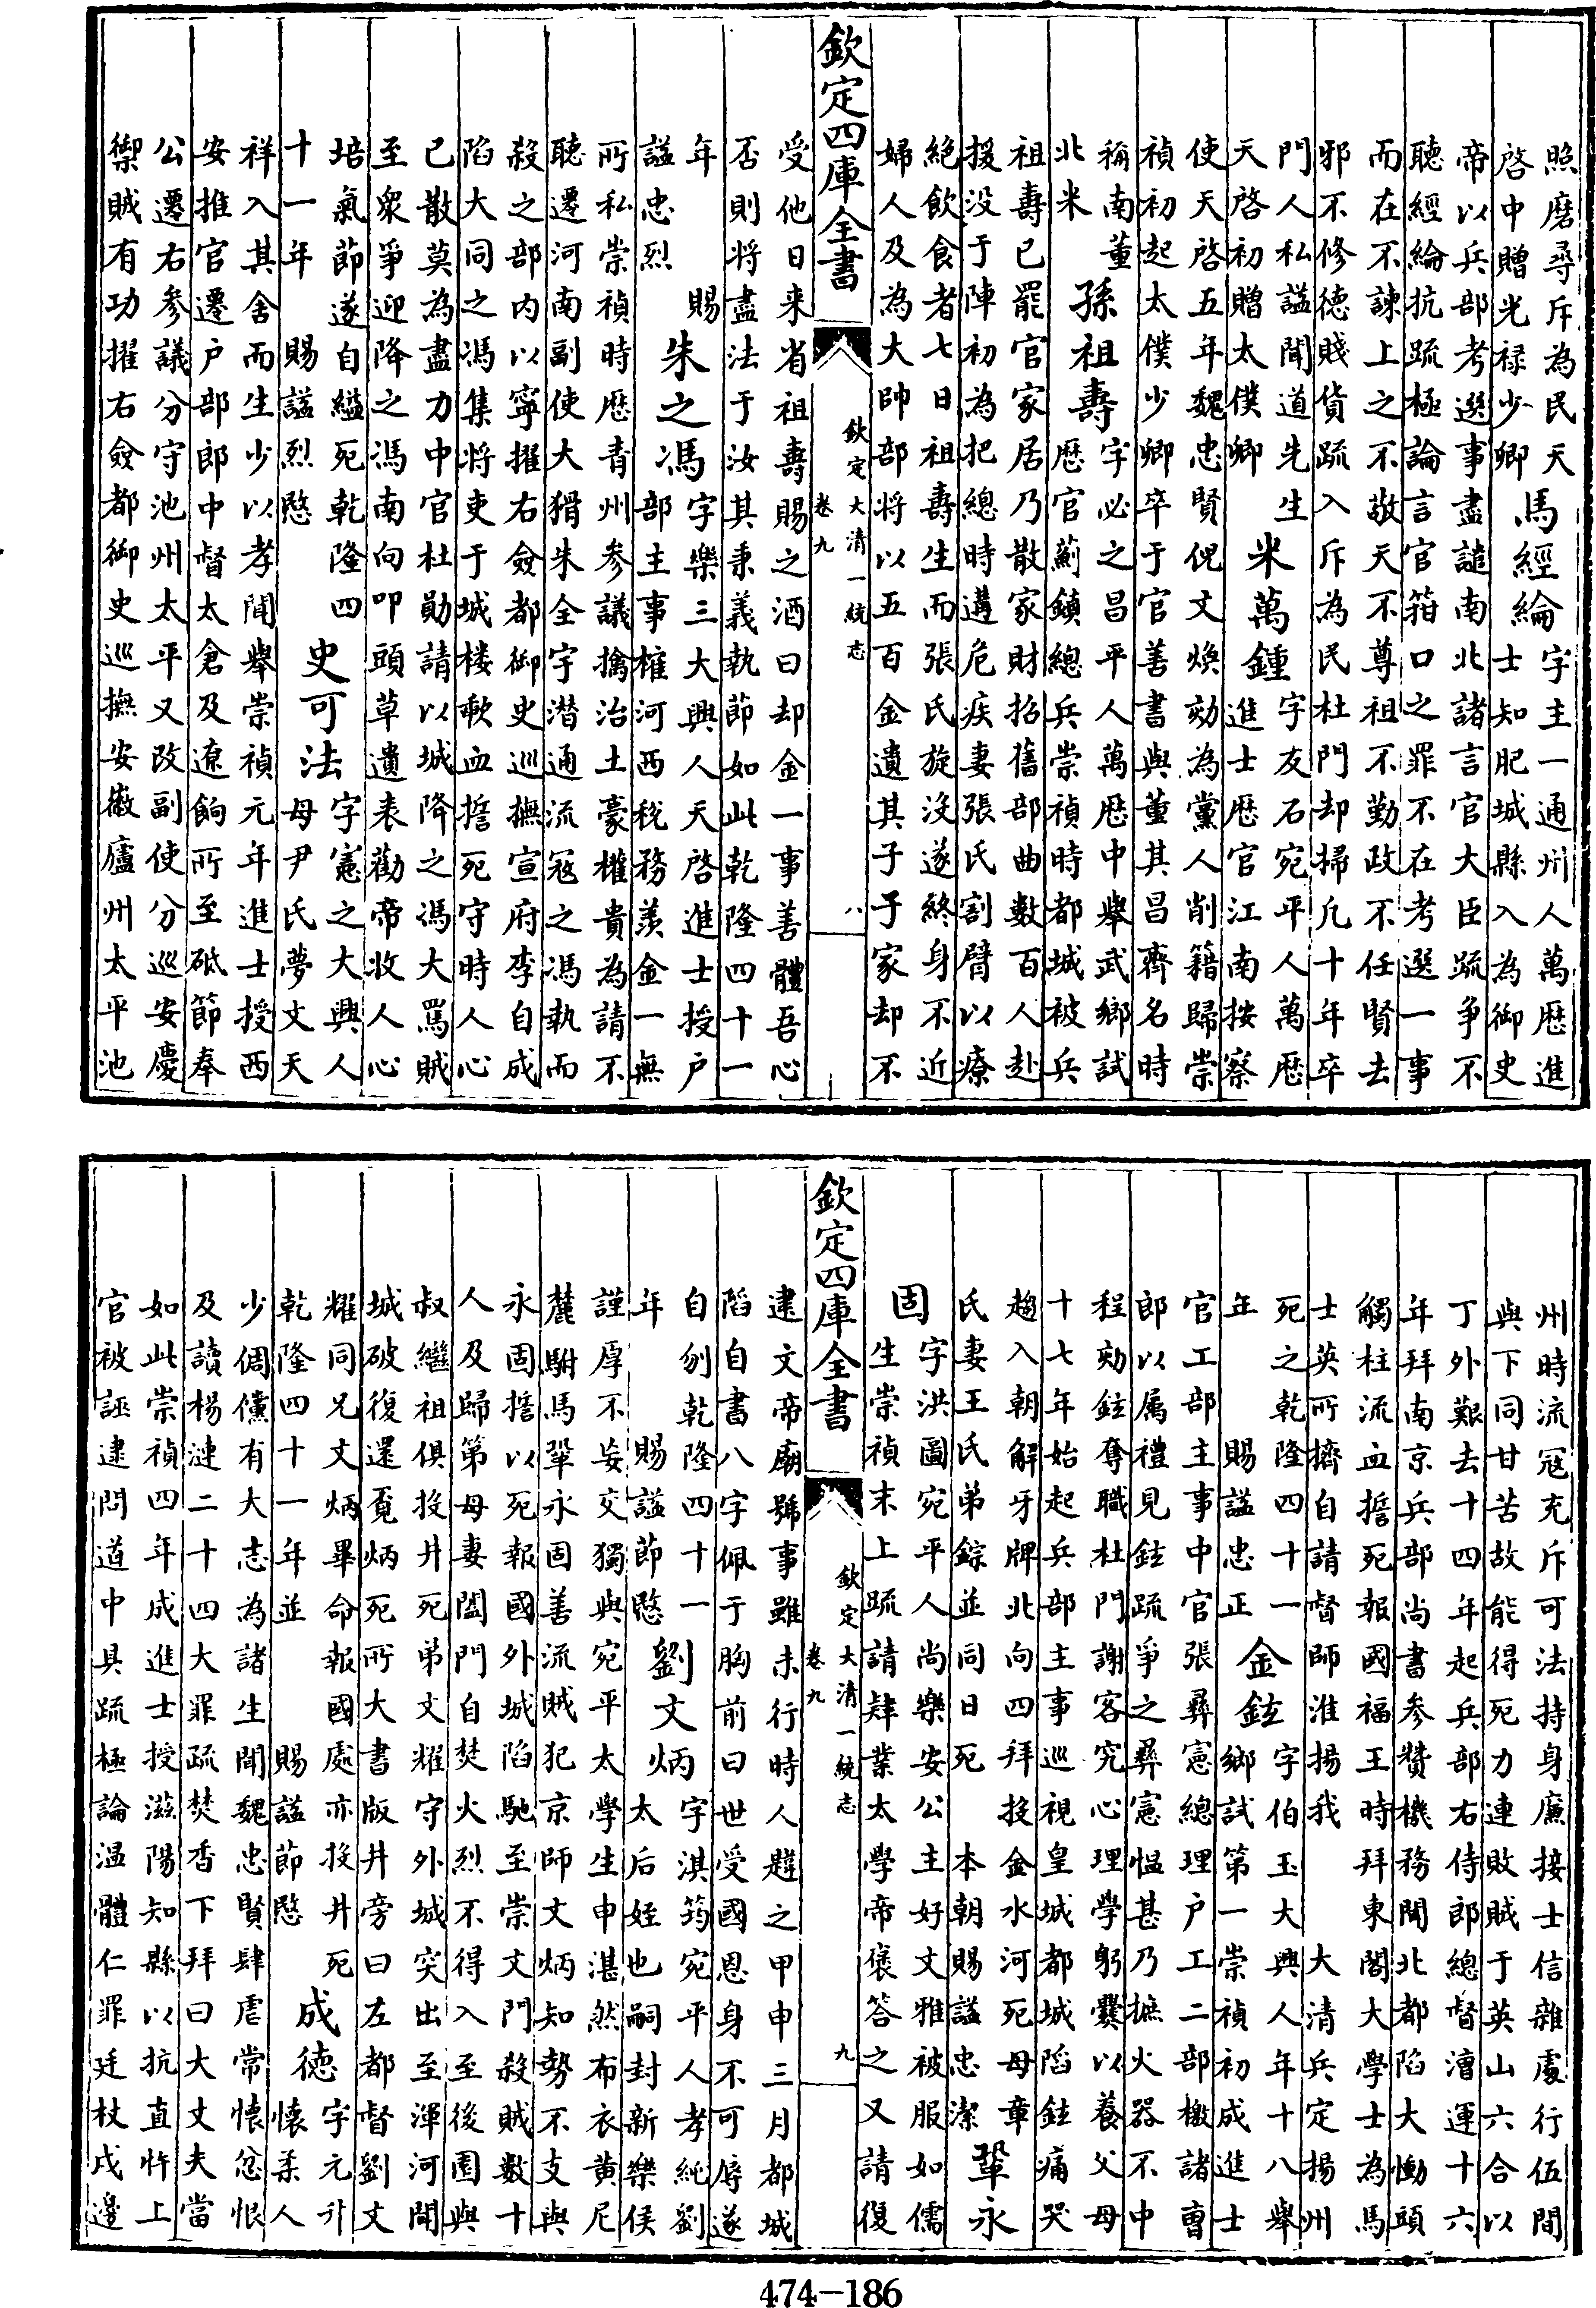 照磨尋斥為民天
啓中贈光禄少卿
馬經綸
字主一通州人萬厯進
士知肥城縣入為御史
帝以兵部考選事盡譴南北諸言官大臣疏爭不
聽經綸抗疏極論言官箝口之罪不在考選一事
而在不諫上之不敬天不尊祖不勤政不任賢去
邪不修徳賤貨疏入斥為民杜門却掃凡十年卒
門人私謚聞道先生
天啓初贈太僕卿
米萬鍾
字友石宛平人萬厯
進士歷官江南按察
使天啓五年魏忠賢倪文煥劾為黨人削籍歸崇
禎初起太僕少卿卒于官善書與董其昌齊名時
稱南董
北米
孫祖壽
字必之昌平人萬厯中舉武鄉試
歷官薊鎮總兵崇禎時都城被兵
祖壽已罷官家居乃散家財招舊部曲數百人赴
援沒于陣初為把總時遘危疾妻張氏割臂以療
絶飲食者七日祖壽生而張氏旋沒遂終身不近
婦人及為大帥部將以五百金遺其子于家却不
欽定四庫全書
欽定大清一統志
卷九
八
受他日来省祖壽賜之酒曰却金一事善體吾心
否則将盡法于汝其秉義執節如此乾隆四十一
年　賜
謚忠烈
朱之馮
字樂三大興人天啓進士授户
部主事榷河西稅務羨金一無
所私崇禎時歷青州參議擒治土豪權貴為請不
聽遷河南副使大猾朱全宇潜通流寇之馮執而
殺之部内以寧擢右僉都御史巡撫宣府李自成
陷大同之馮集将吏于城楼歃血誓死守時人心
已散莫為盡力中官杜勛請以城降之馮大罵賊
至衆爭迎降之馮南向叩頭草遺表勸帝收人心
培氣節遂自縊死乾隆四
十一年　賜謚烈愍
史可法
字憲之大興人
母尹氏夢文天
祥入其舍而生少以孝聞舉崇禎元年進士授西
安推官遷户部郎中督太倉及遼餉所至砥節奉
公遷右參議分守池州太平又改副使分巡安慶
禦賊有功擢右僉都御史巡撫安徽廬州太平池
州時流寇充斥可法持身廉接士信雜處行伍間
與下同甘苦故能得死力連敗賊于英山六合以
丁外艱去十四年起兵部右侍郎總督漕運十六
年拜南京兵部尚書參贊機務聞北都陷大慟頭
觸柱流血誓死報國福王時拜東閣大學士為馬
士英所擠自請督師淮揚我　大清兵定揚州
死之乾隆四十一
年　賜謚忠正
金鉉
字伯玉大興人年十八舉
鄉試第一崇禎初成進士
官工部主事中官張彞憲總理户工二部檄諸曹
郎以属禮見鉉疏爭之彞憲愠甚乃摭火器不中
程劾鉉奪職杜門謝客究心理學躬爨以養父母
十七年始起兵部主事巡視皇城都城陷鉉痛哭
趨入朝解牙牌北向四拜投金水河死母章
氏妻王氏弟錝並同日死　本朝賜謚忠潔
鞏永
固
字洪圖宛平人尚樂安公主好文雅被服如儒
生崇禎末上疏請肄業太學帝褒答之又請復
欽定四庫全書
欽定大清一統志
卷九
九
建文帝廟號事雖未行時人韙之甲申三月都城
陷自書八字佩于胸前曰世受國恩身不可辱遂
自刎乾隆四十一
年　賜謚節愍
劉文炳
字淇筠宛平人孝純劉
太后姪也嗣封新樂侯
謹厚不妄交獨與宛平太學生申湛然布衣黄尼
麓駙馬鞏永固善流賊犯京師文炳知勢不支與
永固誓以死報國外城陷馳至崇文門殺賊數十
人及歸第母妻闔門自焚火烈不得入至後園與
叔繼祖俱投井死弟文耀守外城突出至渾河聞
城破復還覓炳死所大書版井旁曰左都督劉文
耀同兄文炳畢命報國處亦投井死
乾隆四十一年並　賜謚節愍
成徳
字元升
懷柔人
少倜儻有大志為諸生聞魏忠賢肆虐常懷忿恨
及讀楊漣二十四大罪疏焚香下拜曰大丈夫當
如此崇禎四年成進士授滋陽知縣以抗直忤上
官被誣逮問道中具疏極論温體仁罪廷杖戍邊
474-186